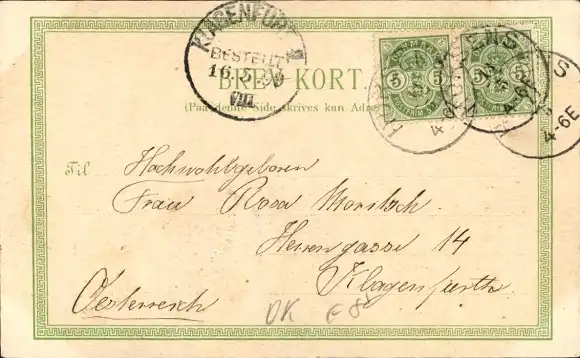 KLAGENFURT 1
BESTELLT
16.5.
VIII
BREV-KORT.
(Paa denne Side skrives kun Adres
DANMARK
5 5
DANMARK
5 5
4-6E
4-6E
Til Hochwohlgeboren
Frau Rosa Moritsch.
Herrengasse 14
Klagenfurth
Oesterreich
DK